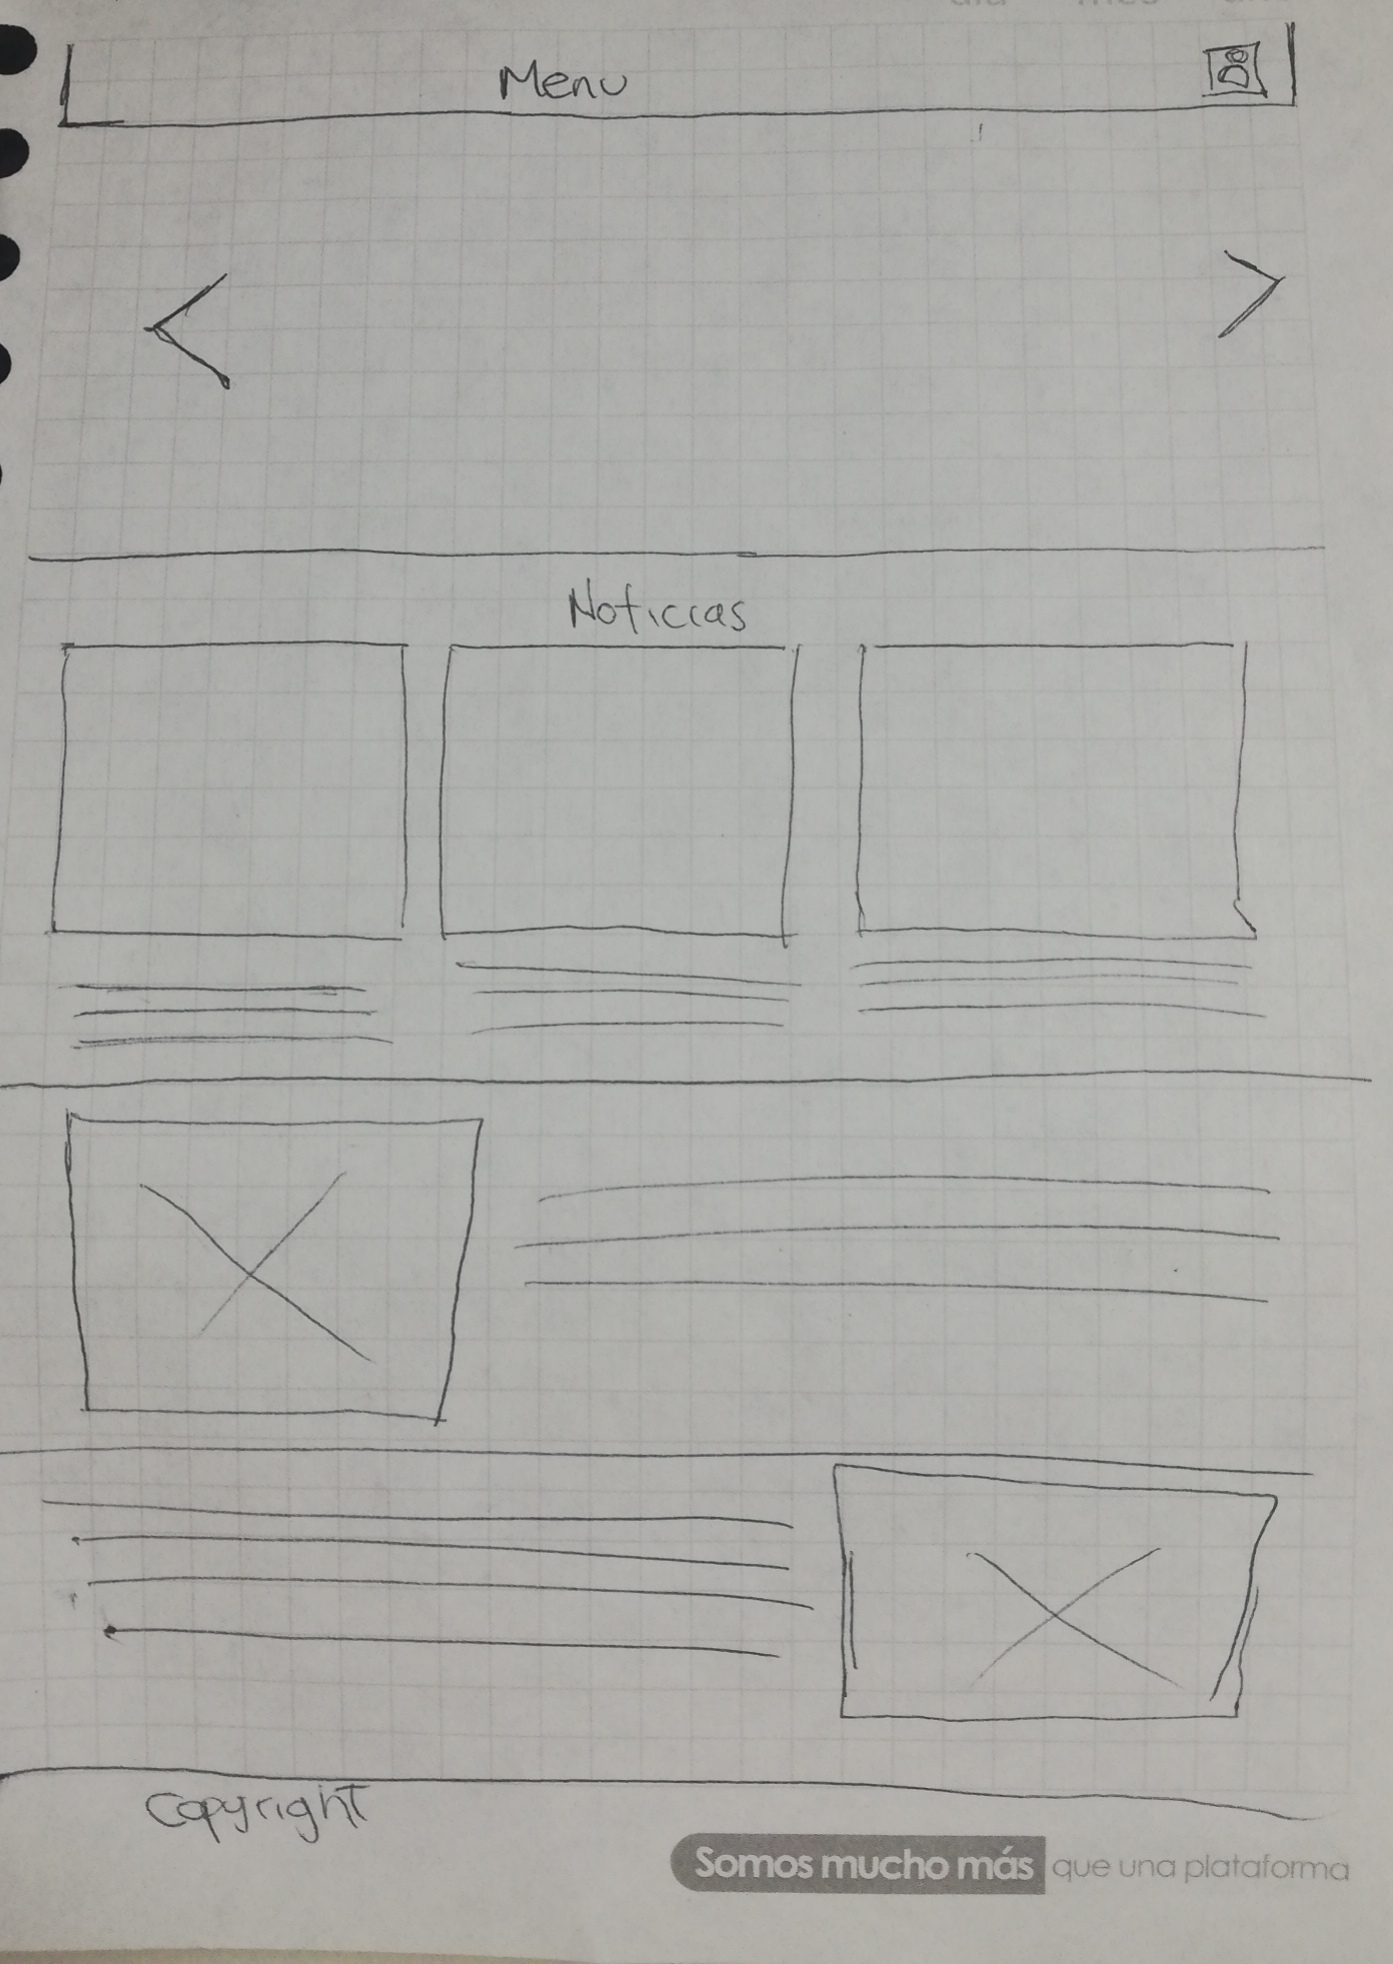 día mes año
Menu
Noticias
Copyright
Somos mucho más que una plataforma